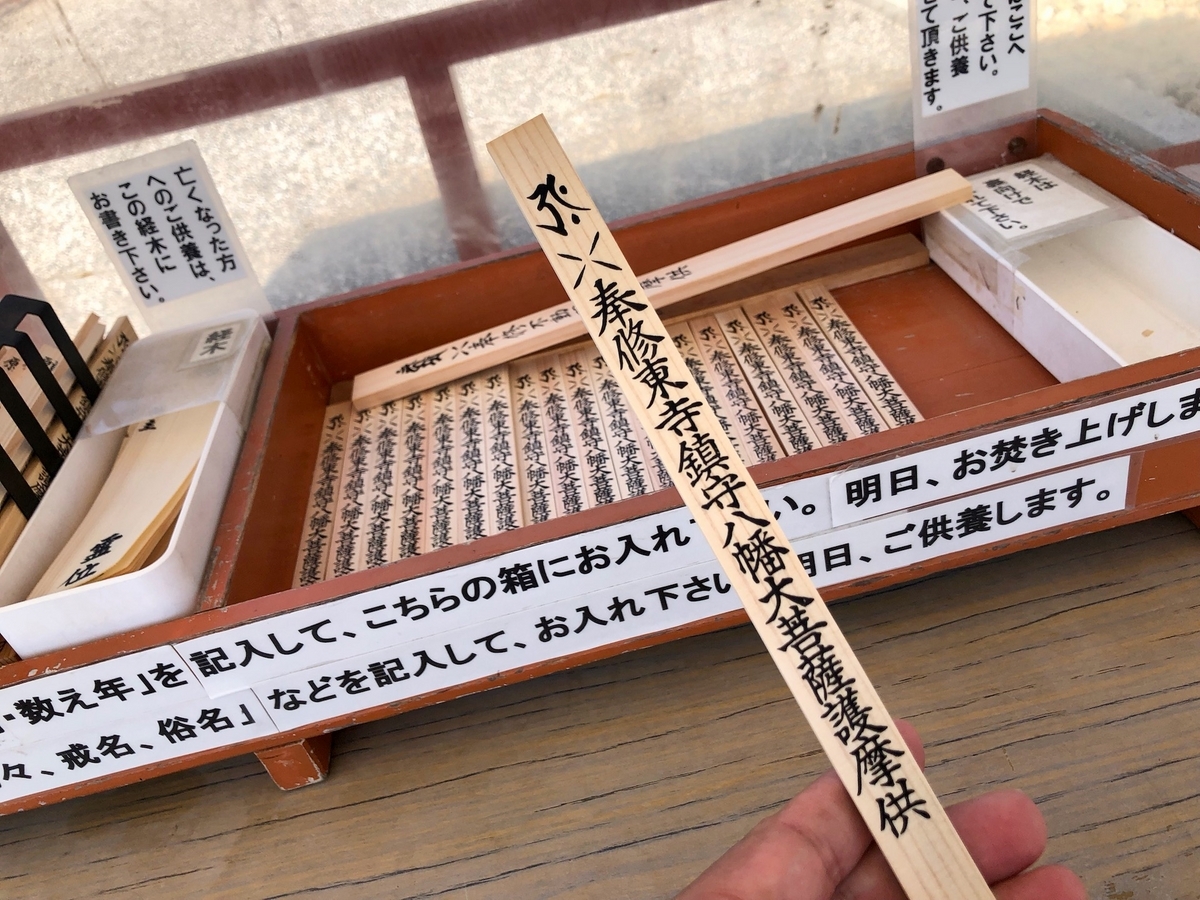 はここへ
て下さい。
、ご供養
せて頂きます。
亡くなった方
へのご供養は、
この経木に
お書き下さい。
経木
霊位
経木は
奉修東寺鎮守八幡大菩薩護摩供
奉修東寺鎮守八幡大菩薩護
・数え年」を
記入して、こちらの箱にお入れ
い。
明日、お焚き上げしま
々、戒名、俗名」
などを記入して、お入れ下さい
明日、ご供養します。